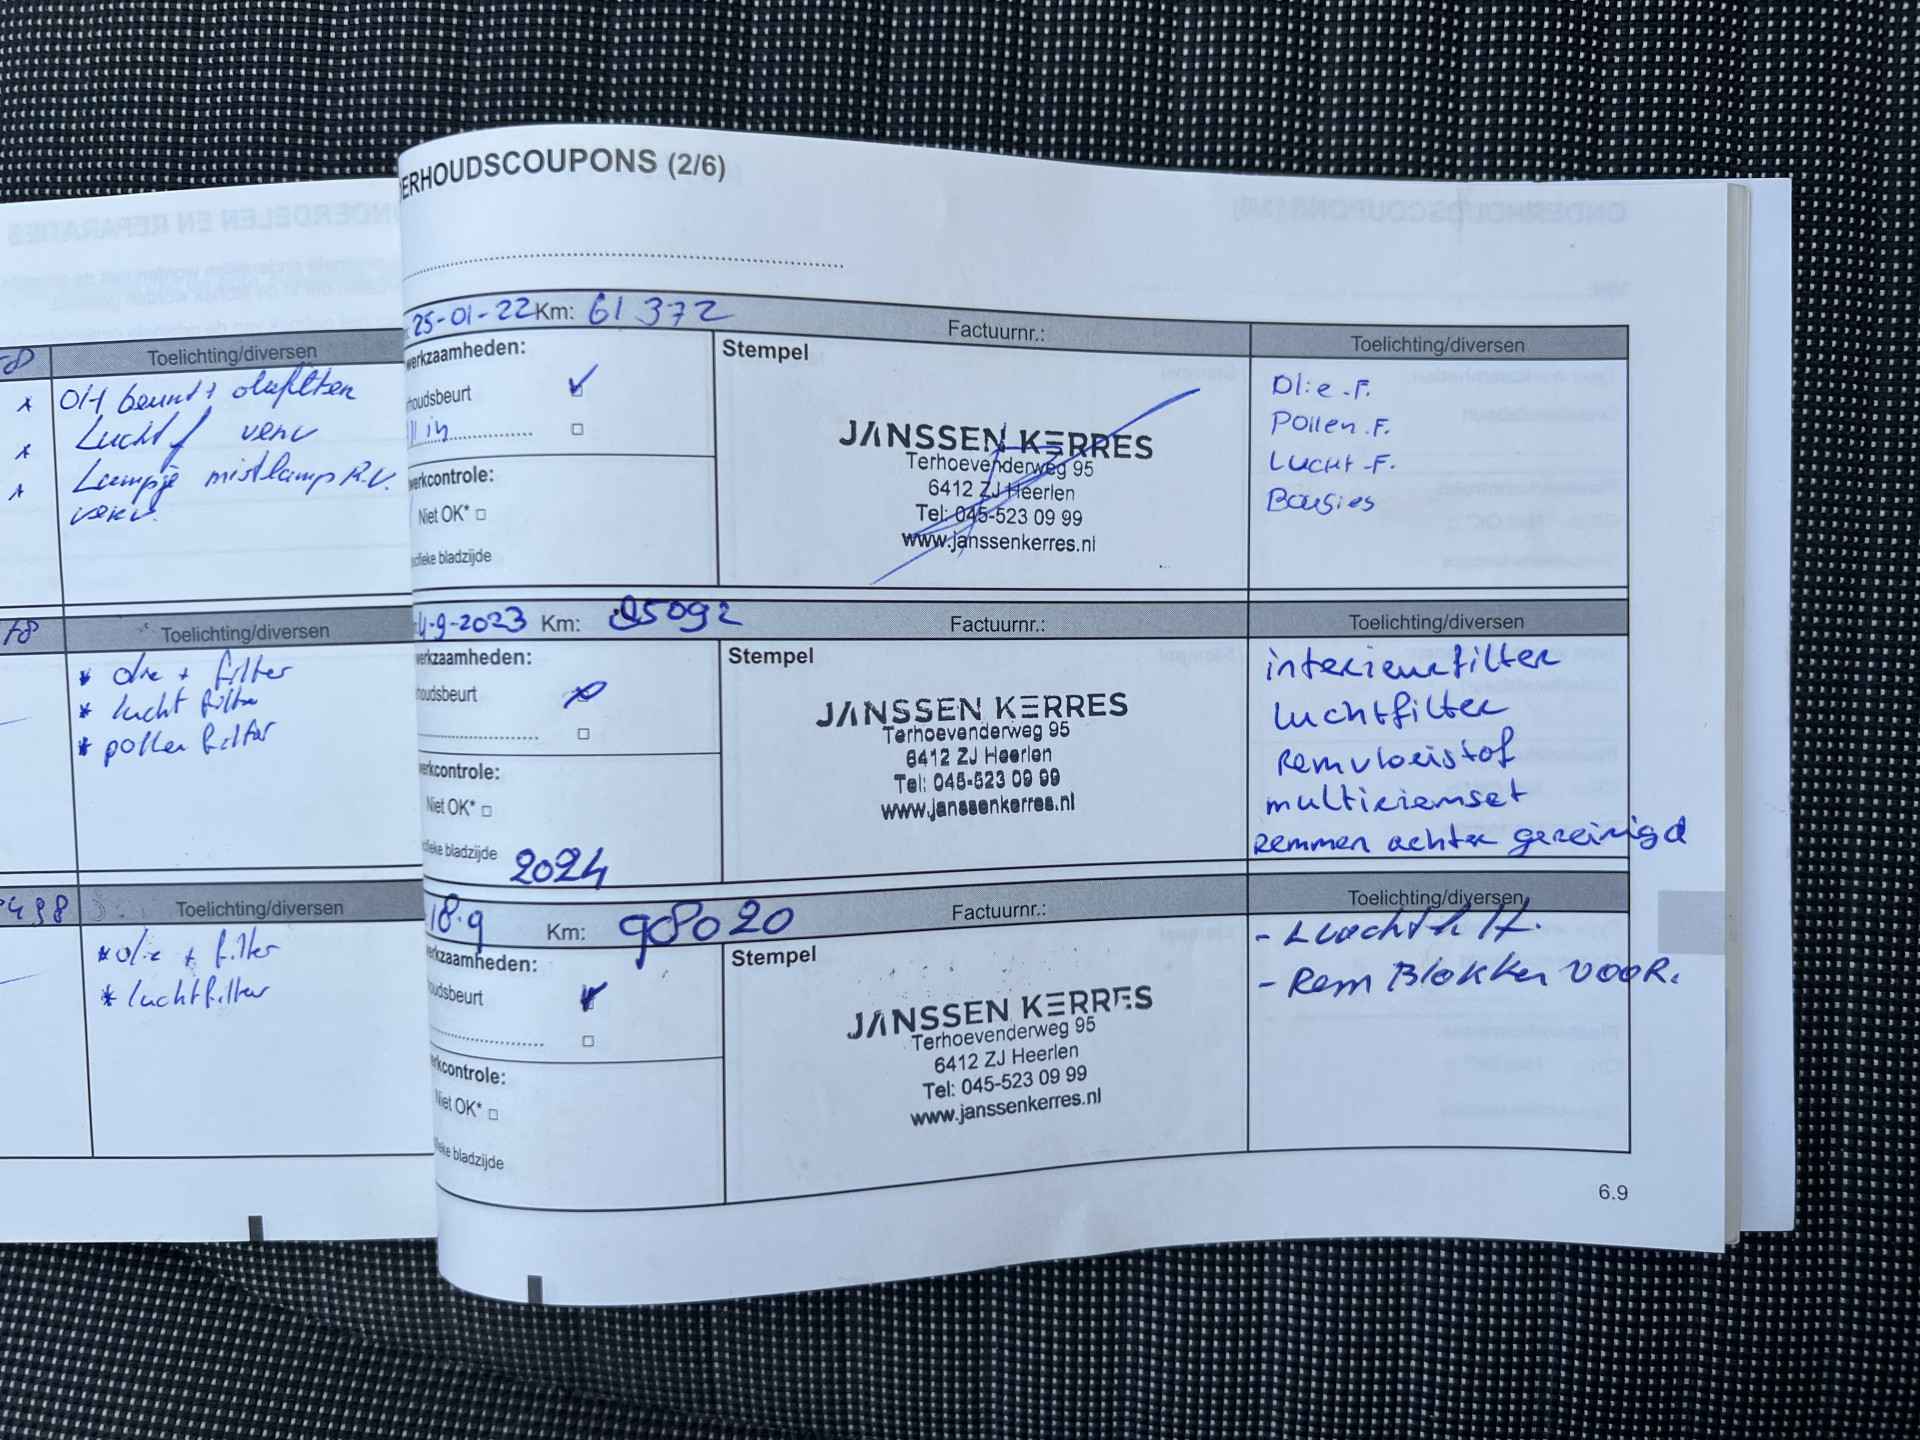 Toelichting/diversen
OH beurt + oliefilter
Luchtf verv
Lampje mistlamp R.V.
verv.
Toelichting/diversen
* olie + filter
* lucht filter
* pollen filter
498
Toelichting/diversen
* olie + filter
* luchtfilter
ERHOUDSCOUPONS (2/6)
25-01-22 Km: 61 372
Factuurnr.:
Toelichting/diversen
werkzaamheden:
houdsbeurt
Stempel
JANSSEN KERRES
Terhoevenderweg 95
6412 ZJ Heerlen
Tel: 045-523 09 99
www.janssenkerres.nl
Olie-F.
Pollen.F.
Lucht-F.
Bougies
erkcontrole:
Niet OK*
cifieke bladzijde
4-9-2023 Km: 85092
Factuurnr.:
Toelichting/diversen
erkzaamheden:
houdsbeurt
Stempel
JANSSEN KERRES
Terhoevenderweg 95
6412 ZJ Heerlen
Tel: 045-523 09 99
www.janssenkerres.nl
interieurfilter
luchtfilter
Remvloeistof
multiriemset
Remmen achter gereinigd
erkcontrole:
Niet OK*
fieke bladzijde
2024
18.9 Km: 98020
Factuurnr.:
Toelichting/diversen
erkzaamheden:
oudsbeurt
Stempel
JANSSEN KERRES
Terhoevenderweg 95
6412 ZJ Heerlen
Tel: 045-523 09 99
www.janssenkerres.nl
- Luchtfilt.
- Rem Blokken VOOR.
rkcontrole:
Niet OK*
ieke bladzijde
6.9